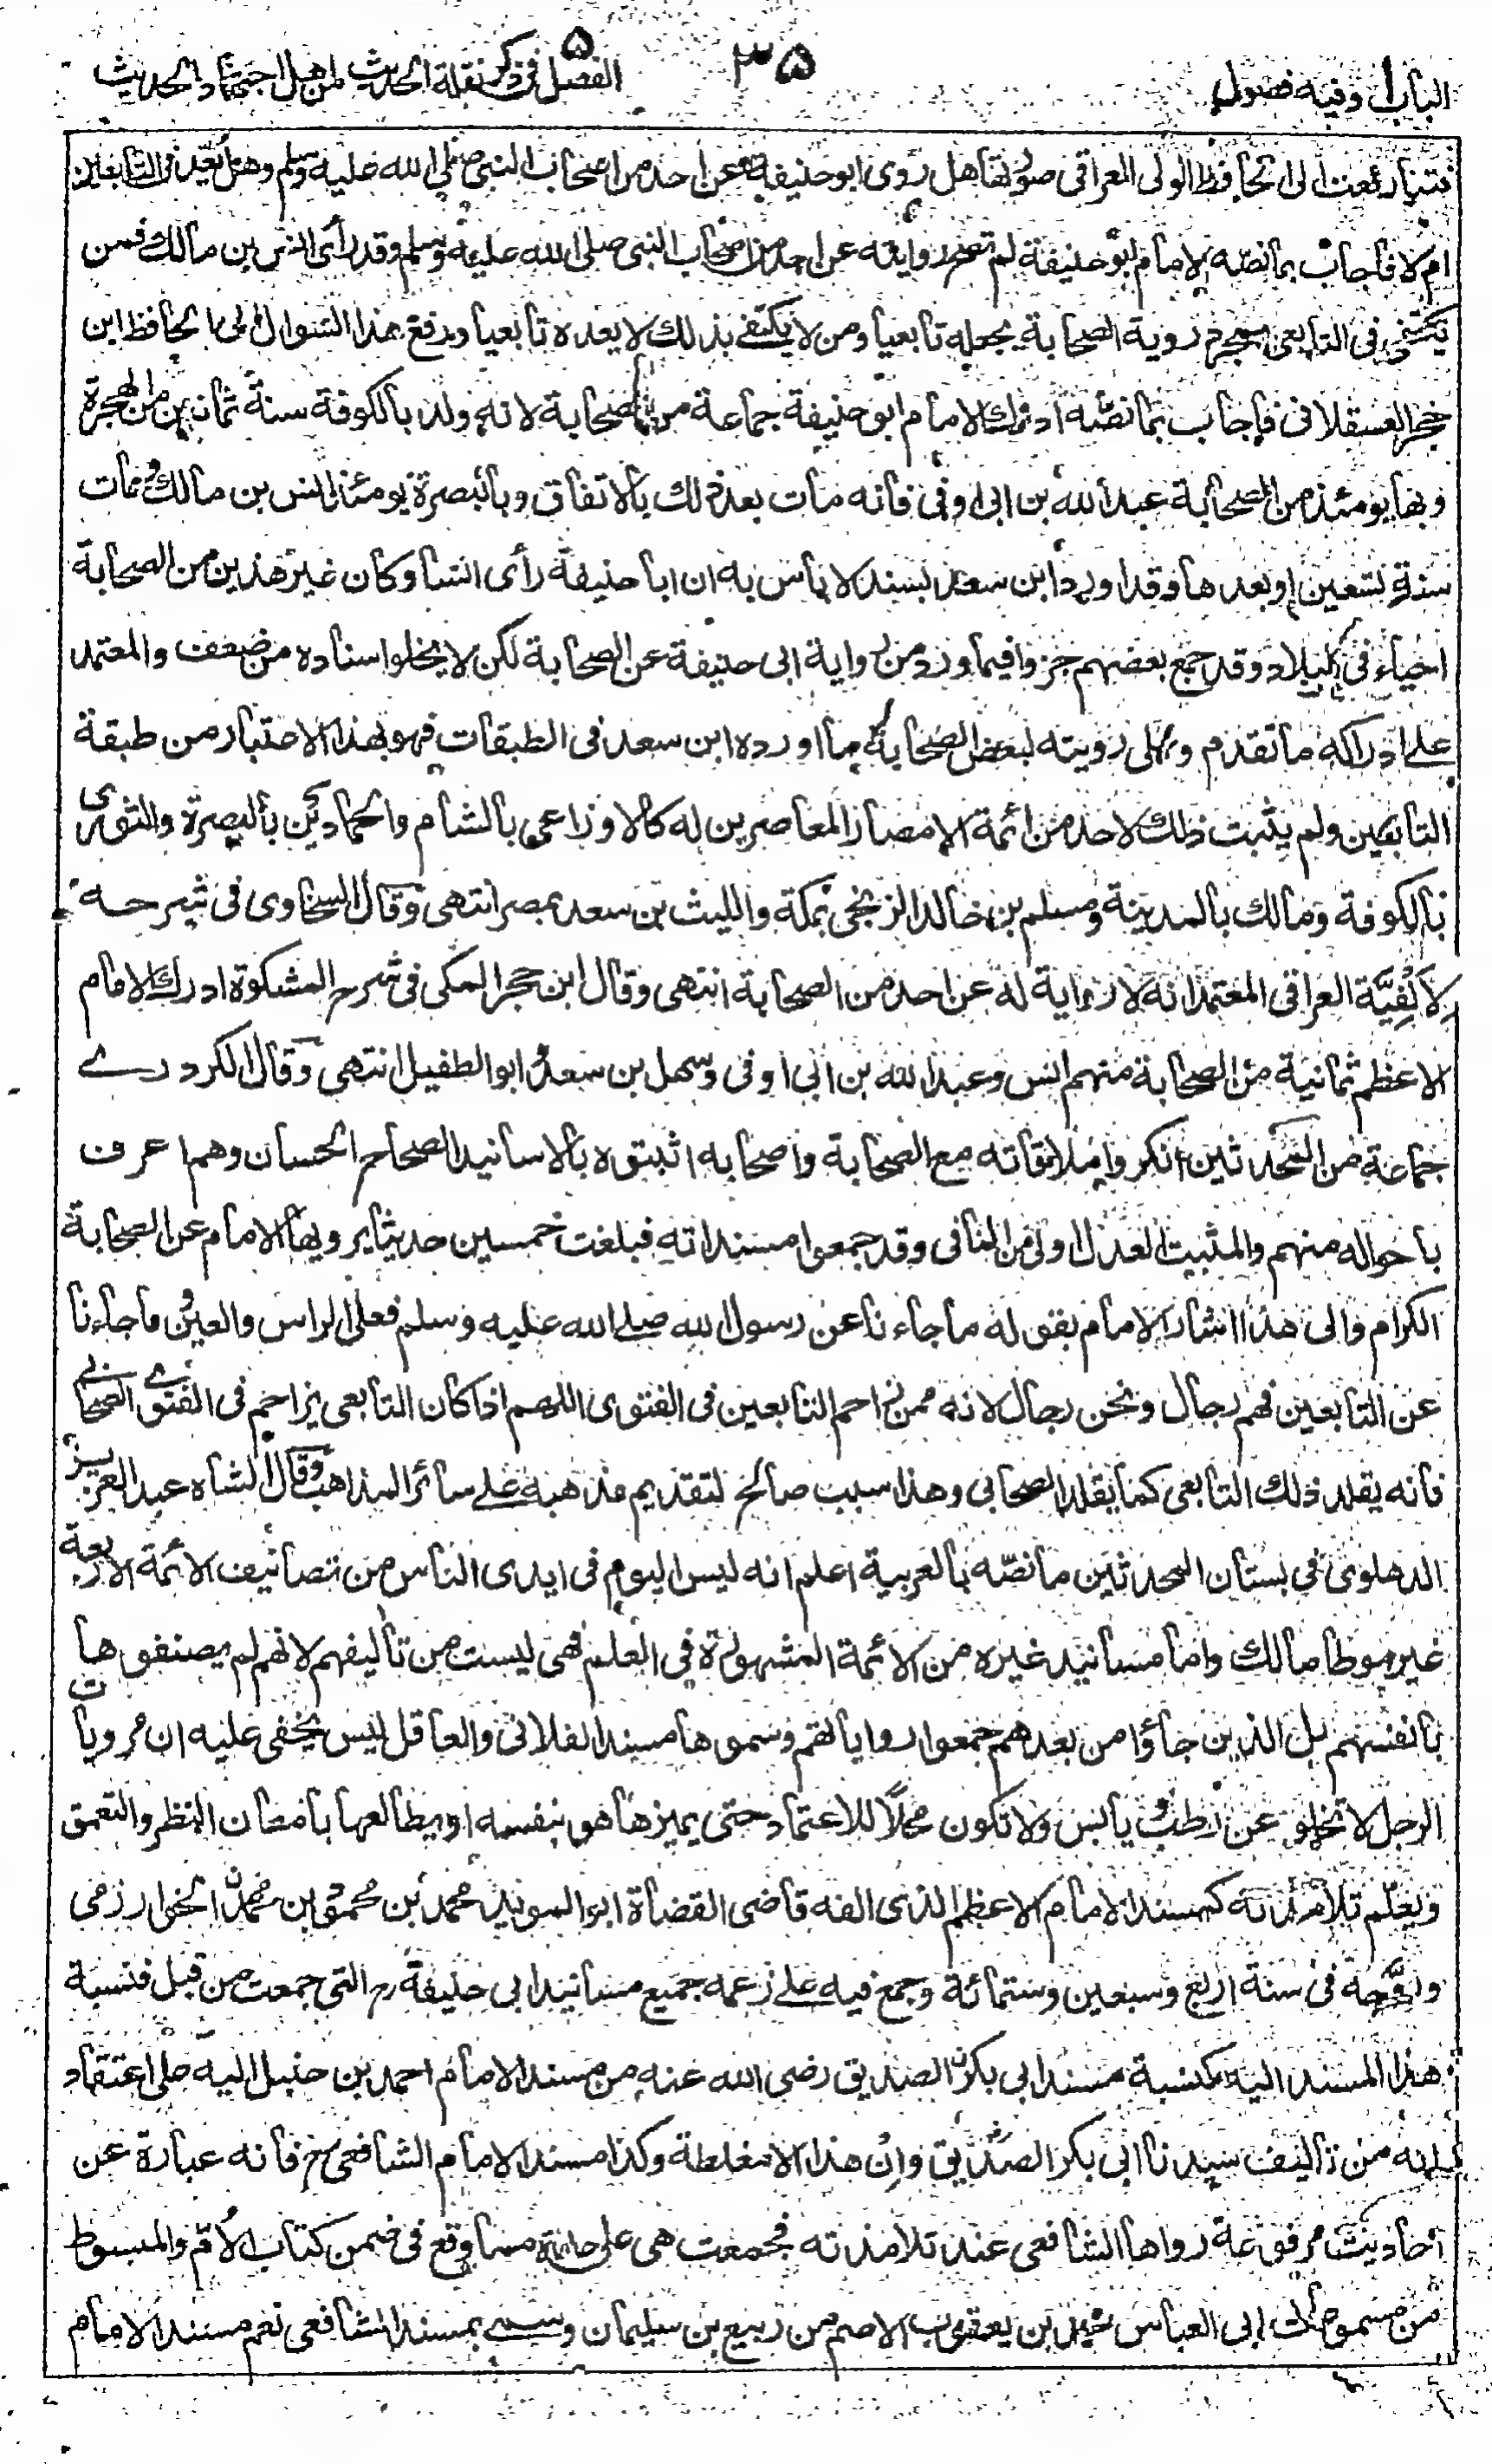 الباب ا وفيه فصول
٣٥
الفصل ٥ في ذكر نقلة الحديث لمن هل اجتهاد الحديث
فتيا رفعت الى الحافظ الولى العراقى صورتها هل روى ابو حنيفة عن احد من اصحاب النبى صلى الله عليه وسلم وهل يعد فى التابعين
ام لا فاجاب بما نصه الامام ابو حنيفة لم تصح روايته عن احد من اصحاب النبى صلى الله عليه وسلم وقد رأى انس بن مالك فمن
يكتفى فى التابعى بمجرد روية الصحابة يجعله تابعيا ومن لا يكتفى بذلك لا يعده تابعيا ورفع هذا السوال الى الحافظ ابن
حجر العسقلانى فاجاب بما نصه ادرك الامام ابو حنيفة جماعة من الصحابة لانه ولد بالكوفة سنة ثمانين من الهجرة
وبها يومئذ من الصحابة عبد الله بن ابى اوفى فانه مات بعد ذلك بالاتفاق وبالبصرة يومئذ انس بن مالك ومات
سنة تسعين او بعدها وقد اورد ابن سعد بسند لا باس به ان ابا حنيفة رأى انسا وكان غير هذين من الصحابة
احياء فى البلاد وقد جمع بعضهم جزوا فيما ورد من رواية ابى حنيفة عن الصحابة لكن لا يخلوا سناده من ضعف والمعتمد
على ادراكه ما تقدم وعلى رويته لبعض الصحابة ما اورده ابن سعد فى الطبقات فهو بهذا الاعتبار من طبقة
التابعين ولم يثبت ذلك لاحد من ائمة الامصار المعاصرين له كالاوزاعى بالشام والحمادين بالبصرة والثورى
بالكوفة ومالك بالمدينة ومسلم بن خالد الزنجى بمكة والليث بن سعد بمصر انتهى وقال السخاوى فى شرحه
لِاَلْفِيَّة العراقى المعتمد انه لا رواية له عن احد من الصحابة انتهى وقال ابن حجر المكى فى شرح المشكوة ادرك الامام
الاعظم ثمانية من الصحابة منهم انس وعبد الله بن ابى اوفى وسهل بن سعد وابو الطفيل انتهى وقال الكردرے
جماعة من المحدثين انكروا ملاقاته مع الصحابة واصحابه اثبتوه بالاسانيد الصحاح الحسان وهم اعرف
باحواله منهم والمثبت العدل اولى من النافى وقد جمعوا مسنداته فبلغت خمسين حديثا يرويها الامام عن الصحابة
الكرام والى هذا اشار الامام بقوله ما جاءنا عن رسول الله صلے الله عليه وسلم فعلى الراس والعين وما جاءنا
عن التابعين فهم رجال ونحن رجال لانه ممن زاحم التابعين فى الفتوى اللهم اذا كان التابعى يزاحم فى الفتوى الصحابى
فانه يقلد ذلك التابعى كما يقلد الصحابى وهذا سبب صالح لتقديم مذهبه علے سائر المذاهب وقال الشاه عبد العزيز
الدهلوى فى بستان المحدثين ما نصه بالعربية اعلم انه ليس اليوم فى ايدى الناس من تصانيف الائمة الاربعة
غير موطا مالك واما مسانيد غيره من الائمة المشهورة فى العلم فهى ليست من تأليفهم لانهم لم يصنفوها
بانفسهم بل الذين جاؤا من بعدهم جمعوا رواياتهم وسموها مسند الفلانى والعاقل ليس يخفى عليه ان مرويات
الرجل لا تخلو عن رطب يابس ولا تكون محلاً للاعتماد حتى يميزها هو بنفسه او يطالعها بامعان النظر والتعمق
ويعلم تلامذته كمسند الامام الاعظم الذى الفه قاضى القضاة ابو المويد محمد بن محمود بن محمد الخوارزمى
وروّجه فى سنة اربع وسبعين وستمائة وجمع فيه علے زعمه جميع مسانيد ابى حنيفة رح التى جمعت من قبل فنسبة
هذا المسند اليه كنسبة مسند ابى بكر الصديق رضى الله عنه من مسند الامام احمد بن حنبل اليه على اعتقاد
انه من تاليف سيدنا ابى بكر الصديق وان هذا الا مغلطة وكذا مسند الامام الشافعى رح فانه عبارة عن
احاديث مرفوعة رواها الشافعى عند تلامذته فجمعت هى على حدة مما وقع فى ضمن كتاب الاُمّ والمبسوط
من مسموعات ابى العباس محمد بن يعقوب الاصم من ربيع بن سليمان وسمى بمسند الشافعى نعم مسند الامام